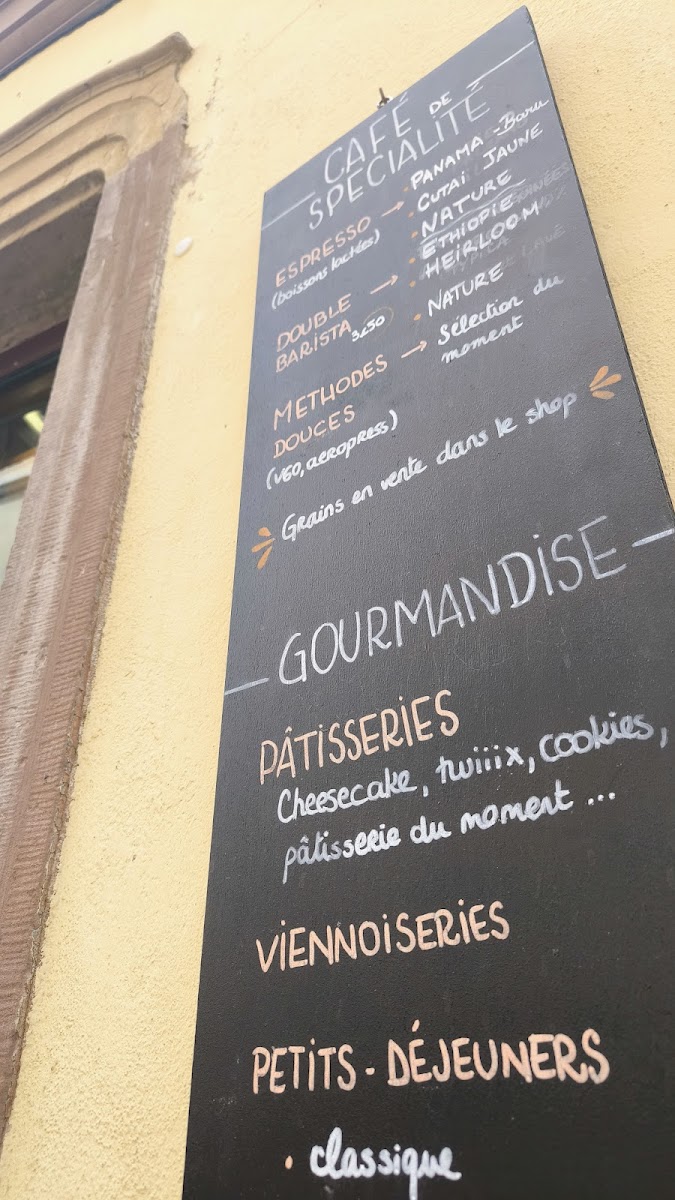 CAFÉ DE
SPÉCIALITÉ
ESPRESSO →
(boissons lactées)
· PANAMA - Baru
· CUTAI JAUNE
· NATURE
DOUBLE →
BARISTA 3€50
· ETHIOPIE
· HEIRLOOM
· NATURE
METHODES →
DOUCES
(V60, AEROPRESS)
Sélection du
moment
Grains en vente dans le shop
GOURMANDISE
PÂTISSERIES
Cheesecake, twiiix, cookies,
pâtisserie du moment ...
VIENNOISERIES
PETITS-DÉJEUNERS
· classique